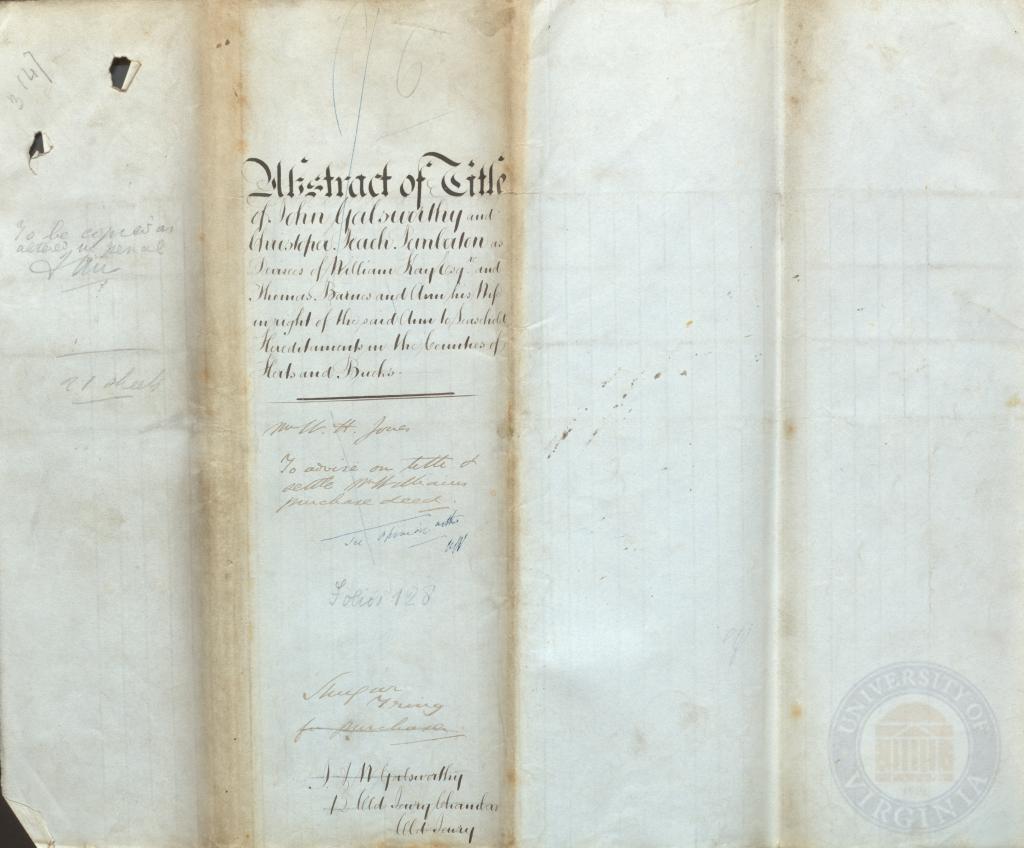 3 [4]
To be copied as
altered in pencil
21 sheets
Abstract of Title
of John Galsworthy and
Christopher Leach Pemberton as
Devisees of William Kay Esqre and
Thomas Barnes and Ann his Wife
in right of the said Ann to Leasehold
Hereditaments in the Counties of
Herts and Bucks.
Mr W. H. Jones
To advise on title &
settle Mr Williams
purchase deed.
See opinion within
Folios 128
Shugar
Tring
for purchaser
J J W Galsworthy
12 Old Jewry Chambers
Old Jewry
UNIVERSITY OF VIRGINIA